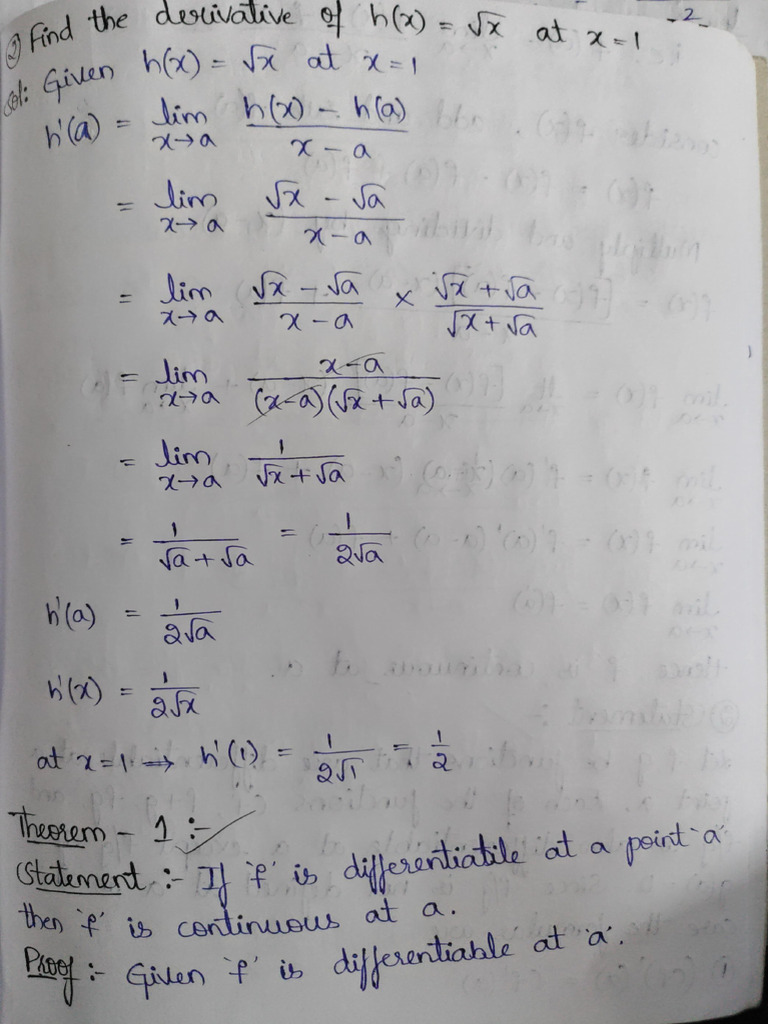 -2-
② Find the derivative of h(x) = √x at x = 1
Sol: Given h(x) = √x at x = 1
h'(a) = lim x→a (h(x) - h(a))/(x - a)
= lim x→a (√x - √a)/(x - a)
= lim x→a (√x - √a)/(x - a) × (√x + √a)/(√x + √a)
= lim x→a (x - a)/((x - a)(√x + √a))
= lim x→a 1/(√x + √a)
= 1/(√a + √a) = 1/(2√a)
h'(a) = 1/(2√a)
h'(x) = 1/(2√x)
at x = 1 → h'(1) = 1/(2√1) = 1/2
Theorem - 1 :-
Statement :- If 'f' is differentiatile at a point 'a'
then 'f' is continuous at a.
Proof :- Given 'f' is differentiable at 'a'.